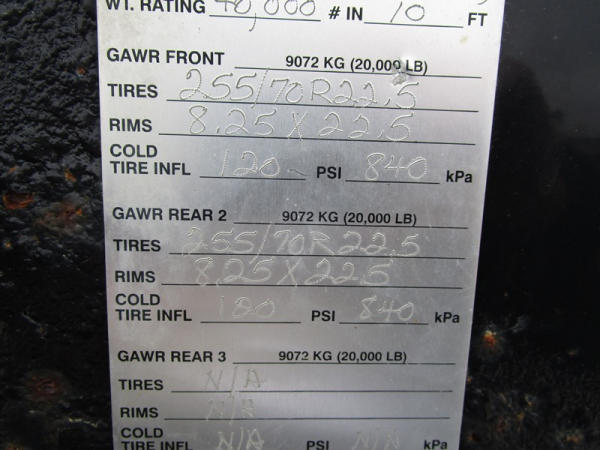 WT. RATING 40,000 # IN 10 FT
GAWR FRONT 9072 KG (20,000 LB)
TIRES 255/70R22.5
RIMS 8.25 X 22.5
COLD
TIRE INFL 120 PSI 840 kPa
GAWR REAR 2 9072 KG (20,000 LB)
TIRES 255/70R22.5
RIMS 8.25 X 22.5
COLD
TIRE INFL 120 PSI 840 kPa
GAWR REAR 3 9072 KG (20,000 LB)
TIRES N/A
RIMS N/A
COLD
TIRE INFL N/A PSI N/A kPa